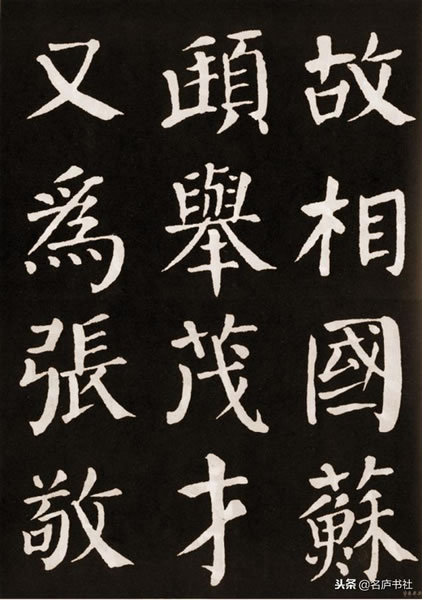 故相國蘇
頲舉茂才
又為張敬
头条 @名庐书社